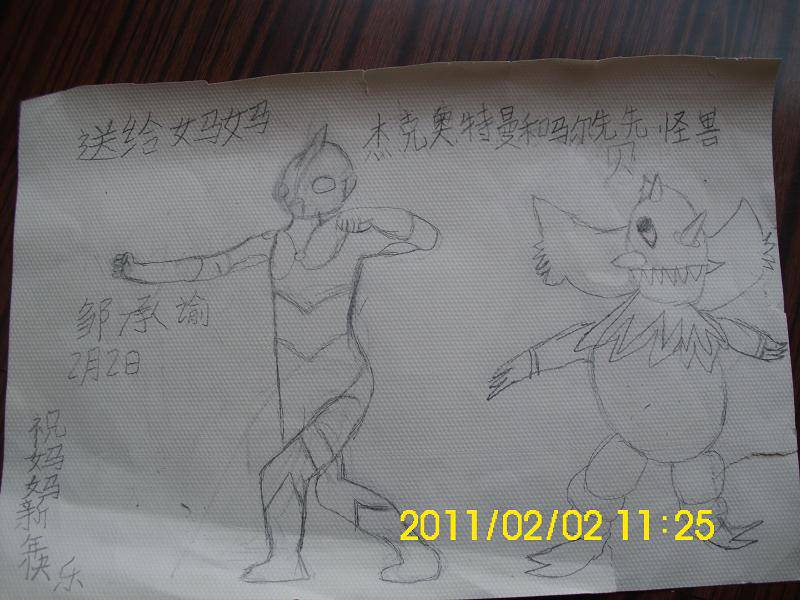 送给妈妈
杰克奥特曼和吗尔先先贝怪兽
邹承瑜
2月2日
祝妈妈新年快乐
2011/02/02 11:25